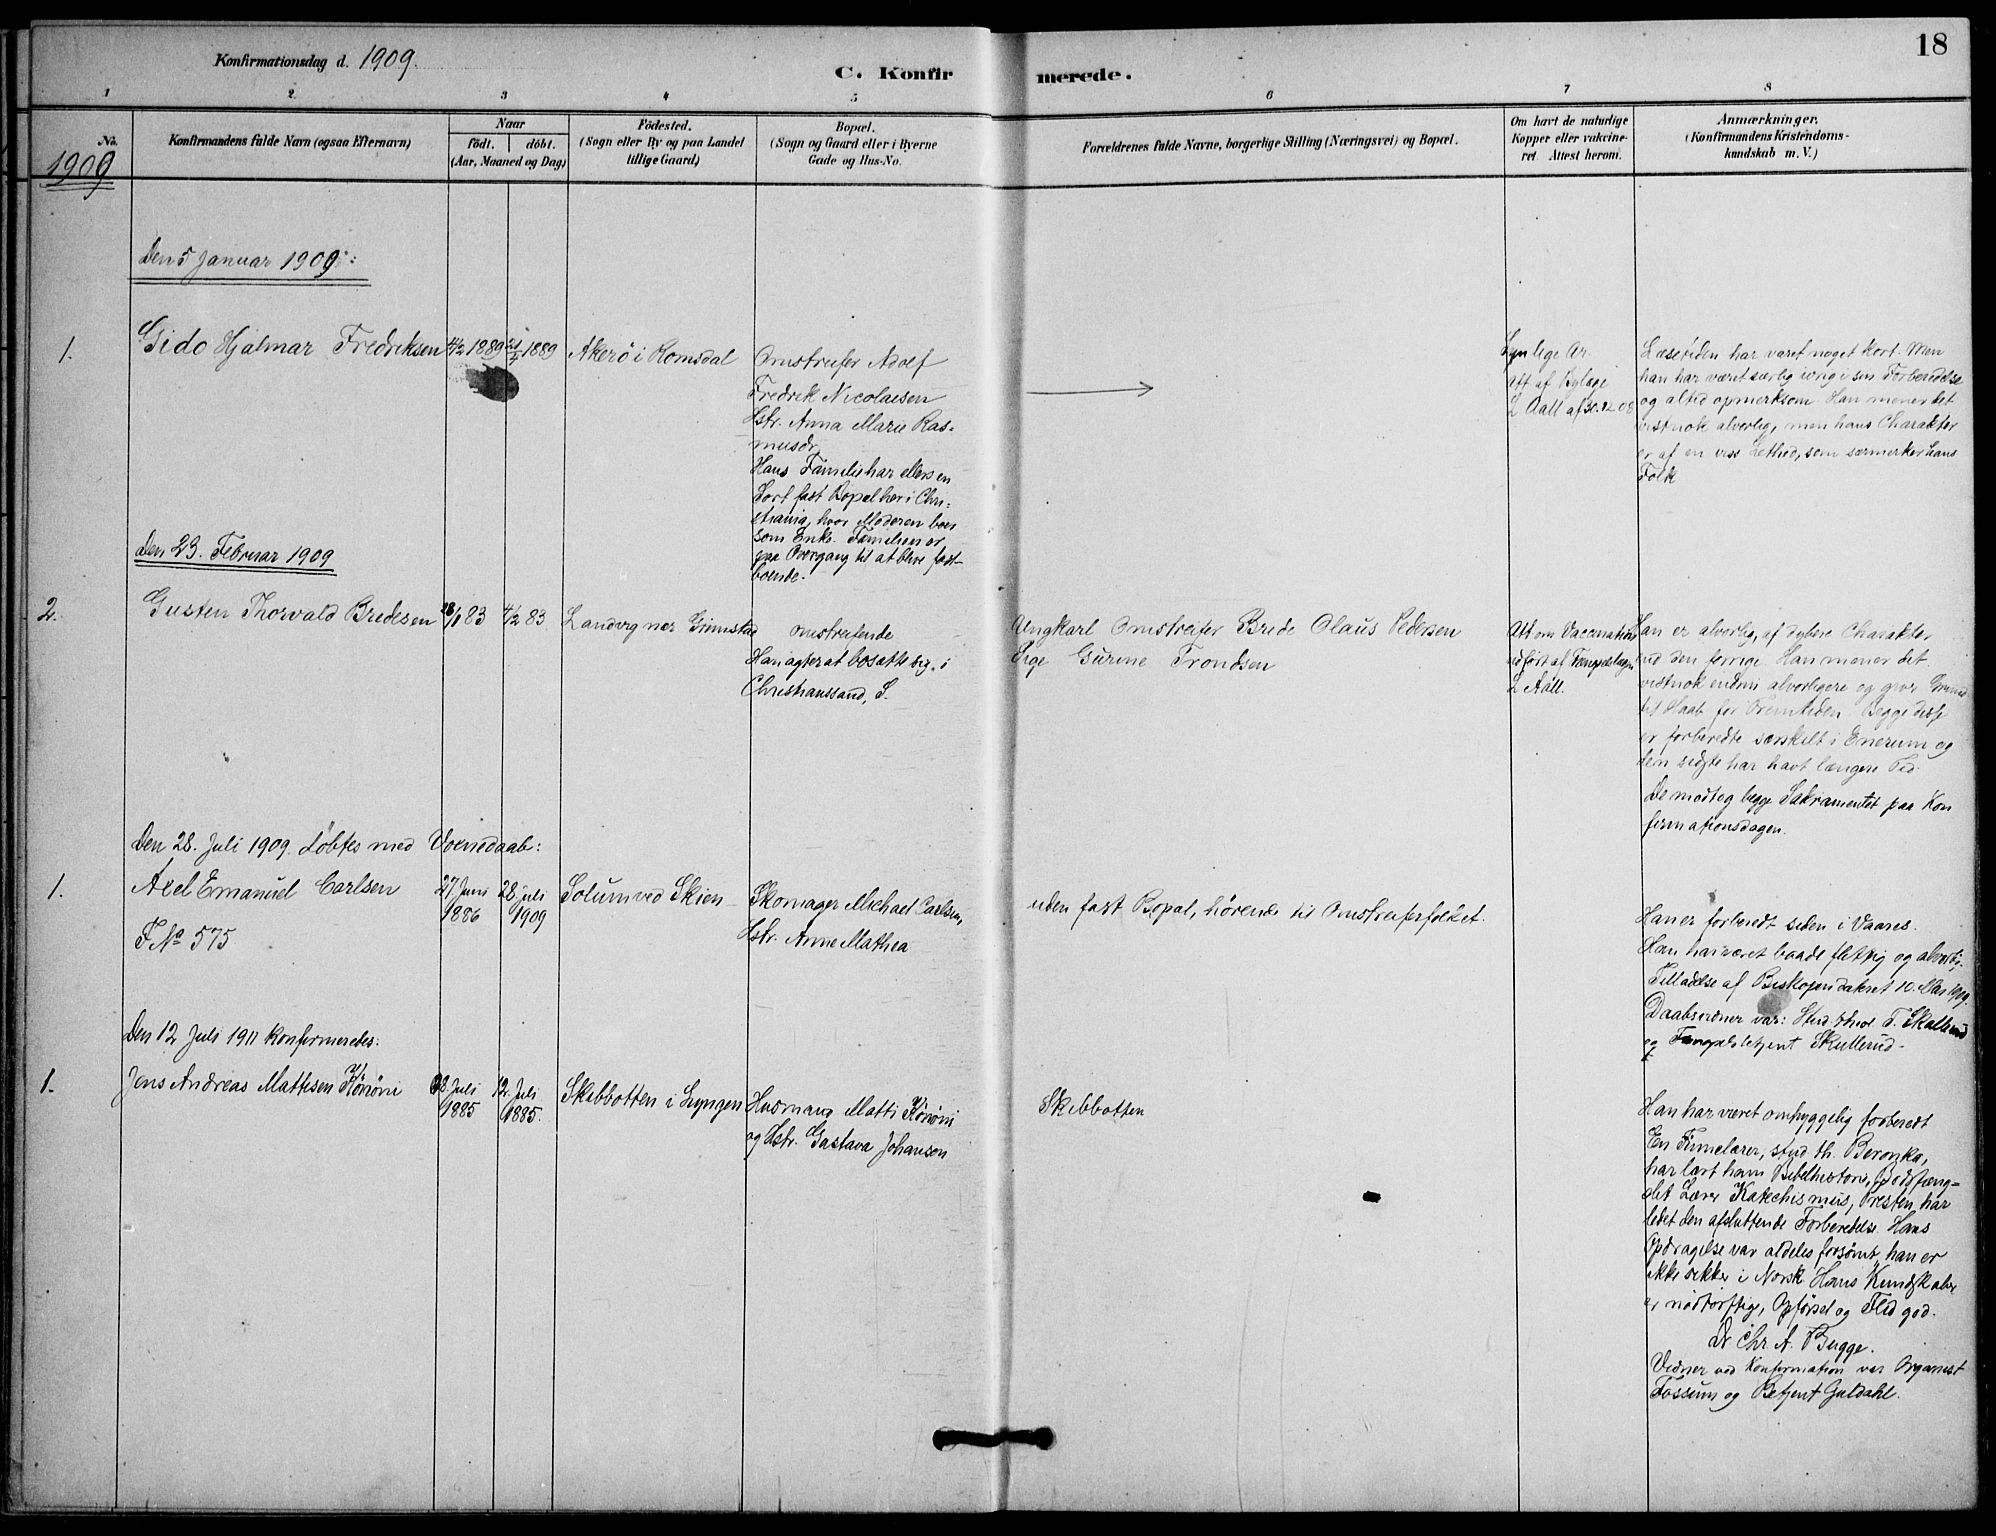 18
Konfirmationsdag d. 1909.
C. Konfirmerede.
1 2 3 4 5 6 7 8
No.
1909
Konfirmandens fulde Navn (ogsaa Efternavn)
Naar
født. døbt.
(Aar, Maaned og Dag)
Fødested.
(Sogn eller By og paa Landet
tillige Gaard)
Bopæl.
(Sogn og Gaard eller i Byerne
Gade og Hus-No.
Forældrenes fulde Navne, borgerlige Stilling (Næringsvei) og Bopæl.
Om havt de naturlige
Kopper eller vakcine-
ret. Attest herom.
Anmerkninger.
(Konfirmandens Kristendoms-
kundskab m. V.)
Den 5 Januar 1909:
1.
Gido Hjalmar Fredriksen
4/2 1889
21/4 1889
Akerö i Romsdal
Omstreifer Adolf
Fredrik Nicolaisen
Hstr. Anna Marie Ras-
musdr
Hans Familie har ellers en
Sort fast Bopæl her i Chri-
stiania, hvor Moderen bor
som Enke. Familien er
paa Overgang til at blive fast-
boende.
Att af
L Aall af 30.12 08
Læsetiden har været noget kort. Men
han har været særlig ivrig i sin Forberedelse
og altid opmerksom. Han mener det
vistnok alvorlig, men hans Charakter
er af en viss Lethed, som særmerker hans
Folk
Den 23. Februar 1909
2.
Gusten Thorvald Bredesen
28/1 83
4/2 83
Landvig nær Grimstad
omstreifende
Han agter at bosætte sig i
Christianssand, S.
Ungkarl Omstreifer Brede Olaus Pedersen
Pige Gurine Trondsen
Att om Vaccination
udført af Fængselslæge
L Aall.
Han er alvorlig, af dybere Charakter
end den forrige. Han mener det
vistnok endnu alvorligere og giver Grund
til Haab for Fremtiden. Begge disse
er forberedte særskilt i Enerum og
den sidste har havt længere Tid.
De modtog begge Sakramentet paa Kon
firmationsdagen.
Den 28. Juli 1909. Døbtes med Voxnedaab:
1.
Axel Emanuel Carlsen
F No 575
27 Juni
1886
28 juli
1909
Solum ved Skien
Skomager Michael Carlsen,
Hstr. Anne Mathea
uden fast Bopæl, hørende til Omstreiferfolket.
Han er forberedt siden i Vaares.
Han har været baade flittig og alvorlig.
Tilladelse af Biskopen dateret 10. Mai 1909.
Daabsvidner var: Stud. theol. T. Skallerud
og Fængselsbetjent Skullerud.
Den 12 Juli 1911 konfirmeredes:
1.
Jens Andreas Mathisen Könöni
28 Juli
1885
12. Juli
1885.
Skibbotten i Lyngen
Husmand Matti Könöni
og Hstr. Gustava Johanson
Skibbotten
Han har været omhyggelig forberedt
En Finnelærer, stud. th. Beronka,
har lært ham Bibelhistorie, Bodsfæng-
slets Lærer Katechismus, Presten har
ledet den afsluttende Forberedelse. Hans
Opdragelse var aldeles forsømt, han er
ikke sikker i Norsk. Hans Kundskaber
er nødtørftige, Opførsel og Flid god.
Dr Chr A. Bugge.
Vidner ved Konfirmation var Organist
Fossum og Betjent Guldahl.